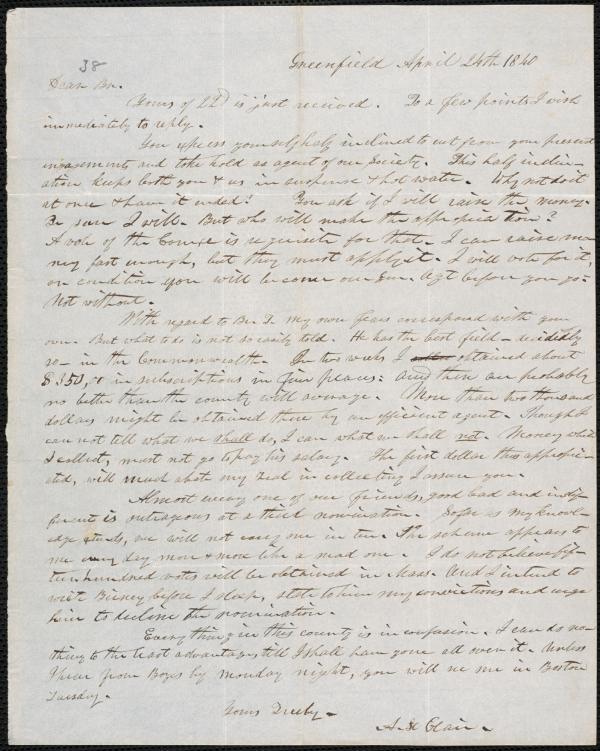 38
Greenfield April 24th 1840
Dear Br.
Yours of 22d is just received. To a few points I wish
immediately to reply.
You express yourself half inclined to cut from your present
engagement and take hold as agent of our Society. This half inclin-
ation keeps both you & us in suspense & hot water. Why not do it
at once & have it ended? You ask if I will raise the money.
Be sure I will. But who will make the appropriation?
A vote of the Com is requisite for that. I can raise mo-
ney fast enough, but they must apply it. I will vote for it,
on condition you will become our Gen. Agt before you go.
Not without.
With regard to Br. T. my own fears correspond with your
own. But what to do is not so easily told. He has the best field - decidedly
so - in the Commonwealth. In two weeks I obtained about
$350, in subscriptions in five places: and these are probably
no better than the county will average. More than two thousand
dollars might be obtained there by an efficient agent. Though I
can not tell what we shall do, I can what we shall not. Money which
I collect, must not go to pay his salary. The first dollar thus appropri-
ated, will much abate my zeal in collecting I assure you.
Almost every one of our friends, good bad and indif-
ferent is outrageous at a third nomination. So far as my knowl-
edge extends, we will not carry one in ten. The scheme appears to
me every day more & more like a mad one. I do not believe fif-
teen hundred votes will be obtained in Mass. And I intend to
write Birney before I sleep, state to him my convictions and urge
him to decline the nomination.
Every thing in this county is in confusion. I can do no-
thing to the least advantage, till I shall have gone all over it. Unless
I hear from Boyes by monday night, you will see me in Boston
Tuesday.
Yours Truly.
A. St Clair.